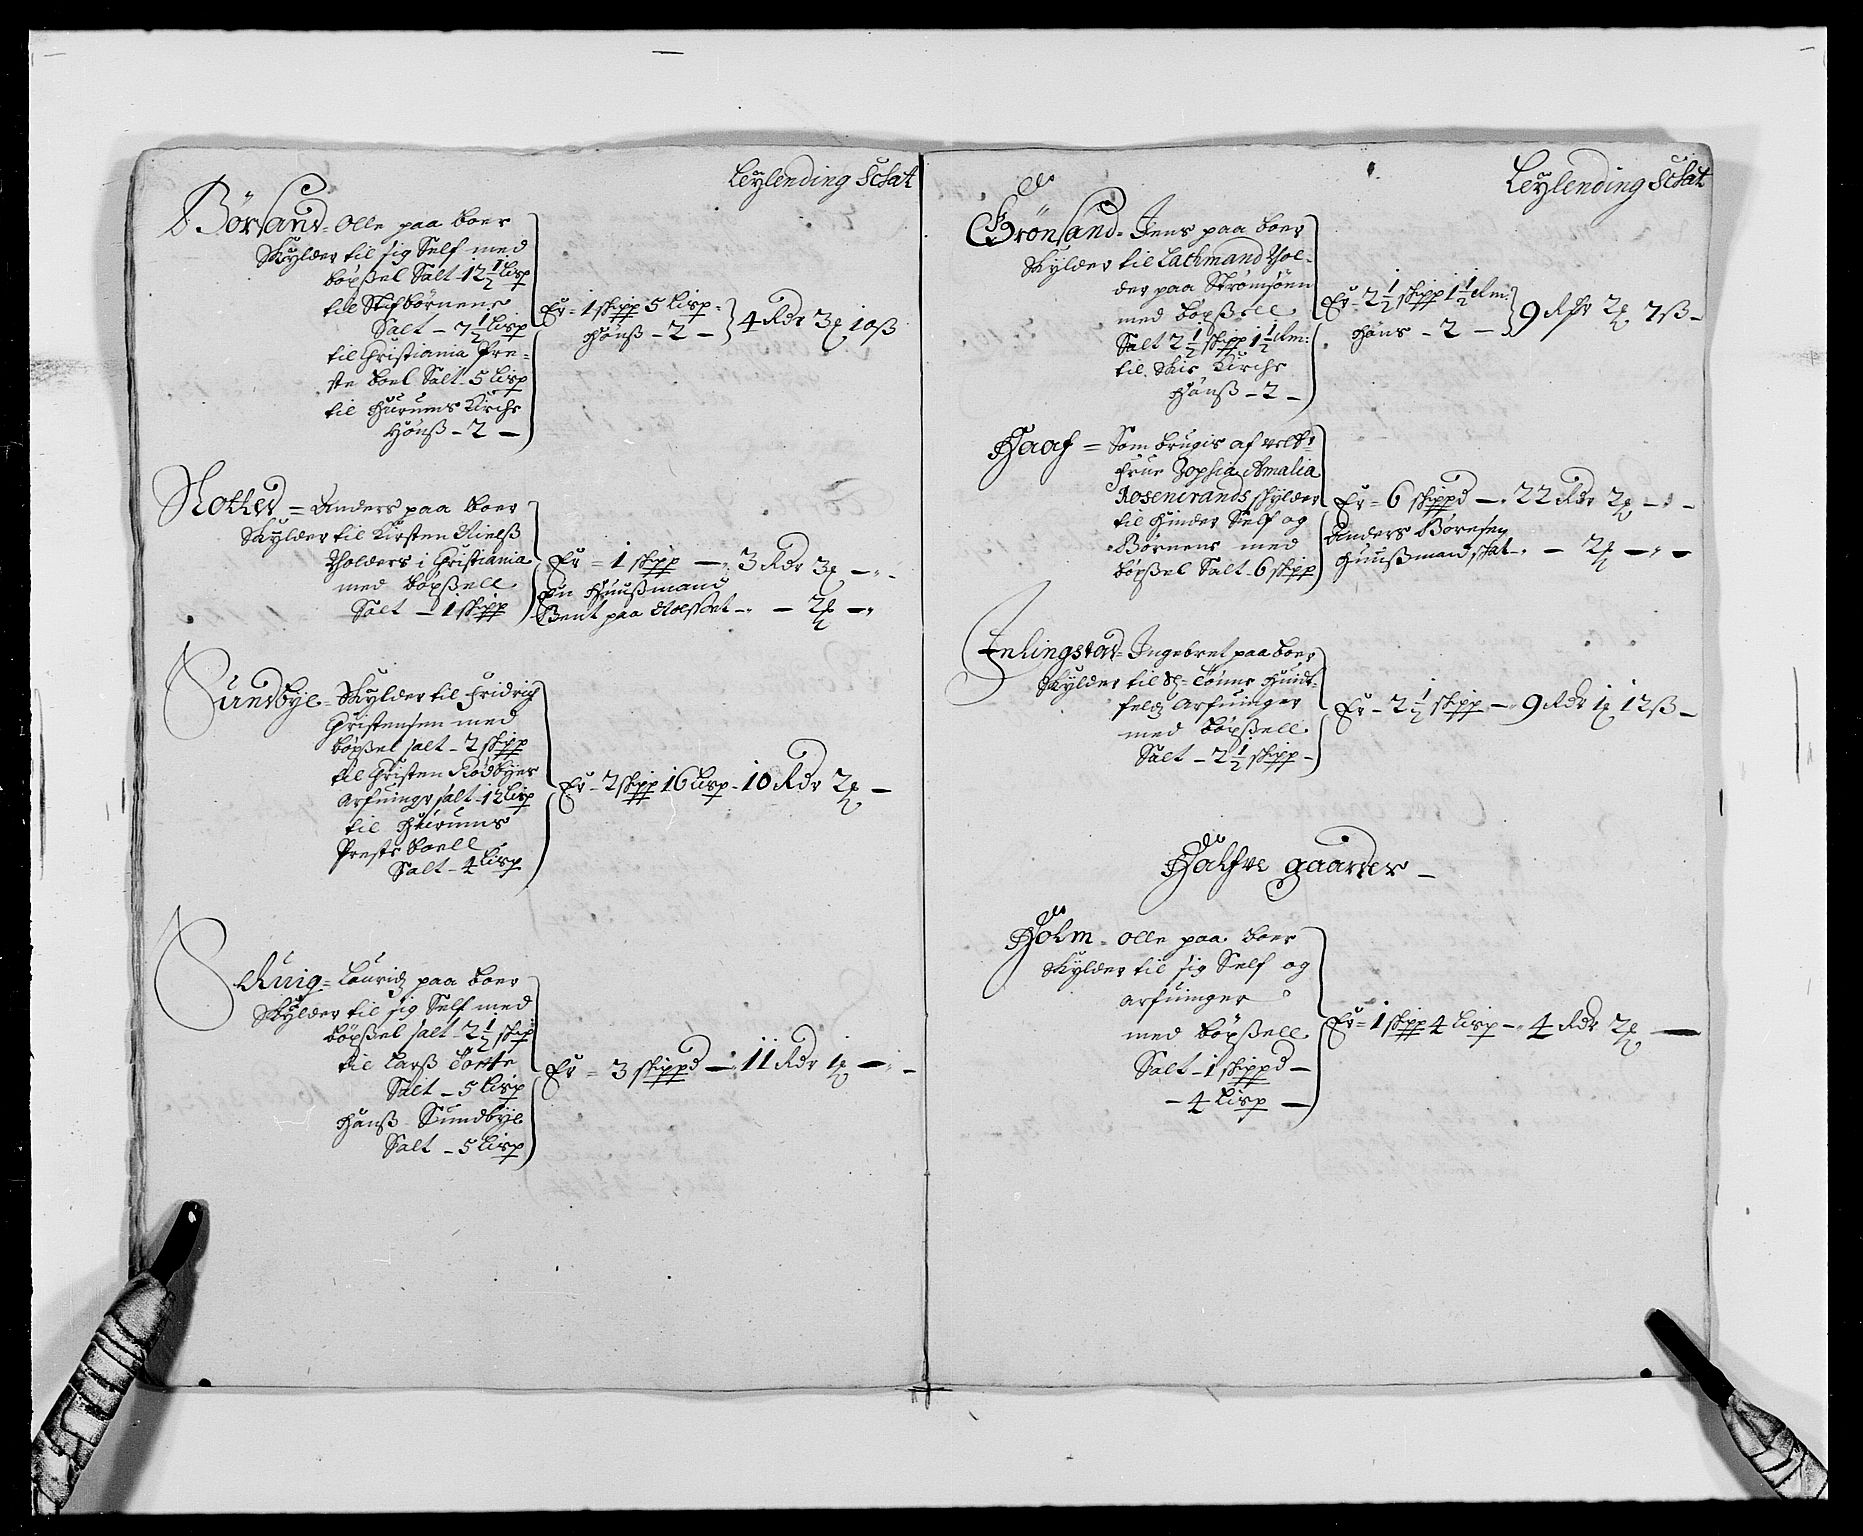 Leylending Schat
Børsand = Olle paa boer
Skylder til sig Self med
böxßel Salt - 12 1/2 Lisp
til Stifbörnene
Salt - 7 1/2 Lisp
til Christiania Pre-
ste boel Salt - 5 Lisp
til Hurums Kirche
Hönß - 2 -
Er = 1 skipp 5 Lisp -
Hönß - 2 -
4 Rdr 3 10ß
= Anders paa boer
Skylder til Kirsten Nielß
Holders i Christiania
med böxßell
Salt - 1 skipp
Er = 1 skipp - 3 Rdr 3 -
en Huußmand
Bent paa - 2 -
Sundbye = Skylder til Fridrich
Christensen med
böxßel salt - 2 skipp
til Christen Rödbyes
Arfuinge salt - 12 Lisp
til Hurums
Preste boell
Salt - 4 Lisp
Er - 2 skipp 16 Lisp - 10 Rdr 2 -
Selvig = Lauridz paa boer
Skylder til sig Self med
böxßel salt - 2 1/2 skip
til Larß Torte
Salt - 5 Lisp
Hanß Sundbye
Salt - 5 Lisp
Er = 3 skippd - 11 Rdr 1 -
Leylending Schat
Grönsand = Jens paa boer
Skylder til Lathmand Hol-
der paa Strömsöen
med böxßell
Salt 2 1/2 skipp 1 1/2 Alm:
til Skie Kirche
Hönß - 2 -
Er - 2 1/2 skipp 1 1/2 Alm:
Höns - 2 -
9 Rdr 2 7ß -
Haaf = Som brugis af velb:
Frue Zophia Amalia
Rosencrands skylder
til Hinder Self og
Börnene med
böxßel Salt - 6 skipp
Er = 6 skippd - 22 Rdr 2 -
Anders Börresen
Huußmand skat - - 2 -
Inkingstad = Ingebret paa boer
Skylder til Sl: Tönne Huidt-
feldz Arfuinger
med böxßell
Salt - 2 1/2 skipp -
Er - 2 1/2 skipp - 9 Rdr 1 12ß -
Halfve gaarder -
Holm - Olle paa boer
Skylder til sig Self og
arfuinger
med böxßell
Salt - 1 skippd -
- 4 Lisp -
Er = 1 skipp 4 Lisp - 4 Rdr 2 -